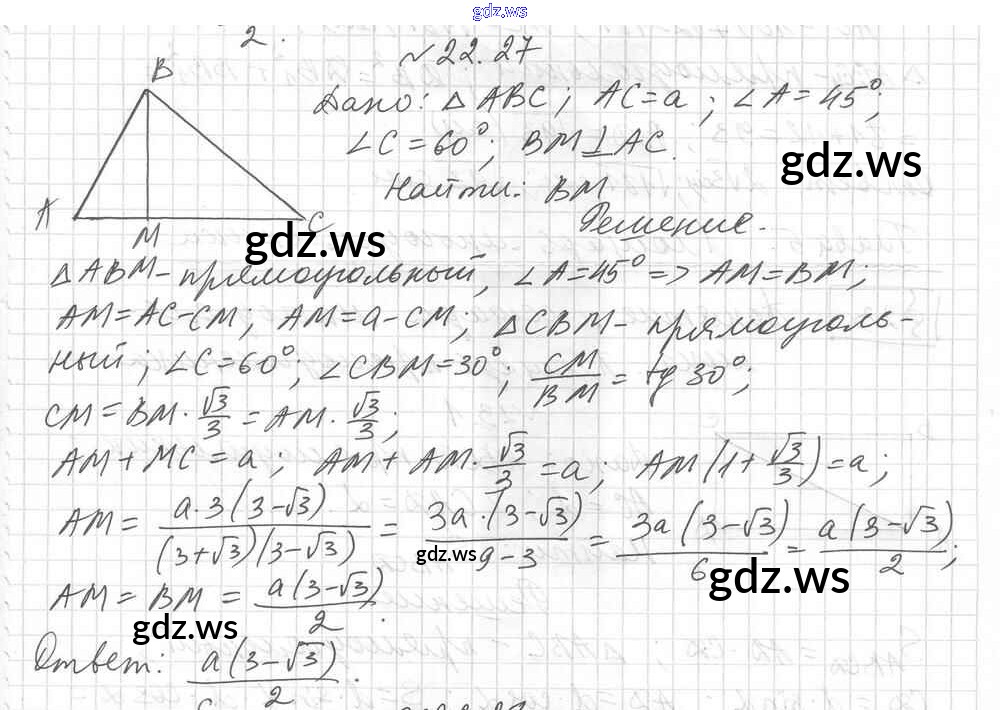 gdz.ws
2.
№22.27
B
Дано: △ABC; AC=a; ∠A=45°;
∠C=60°; BM⊥AC.
gdz.ws
Найти: BM
A
M
C
Решение.
gdz.ws
△ABM-прямоугольный, ∠A=45°=>AM=BM;
AM=AC-CM, AM=a-CM; △CBM-прямоуголь-
ный; ∠C=60°; ∠CBM=30°; CM/BM = tg 30°;
CM=BM·√3/3=AM·√3/3;
AM+MC=a; AM+AM·√3/3=a, AM(1+√3/3)=a;
AM= a·3(3-√3)/(3+√3)(3-√3) = 3a·(3-√3)/9-3 = 3a(3-√3)/6 = a(3-√3)/2;
gdz.ws
gdz.ws
AM=BM= a(3-√3)/2.
gdz.ws
Ответ: a(3-√3)/2.